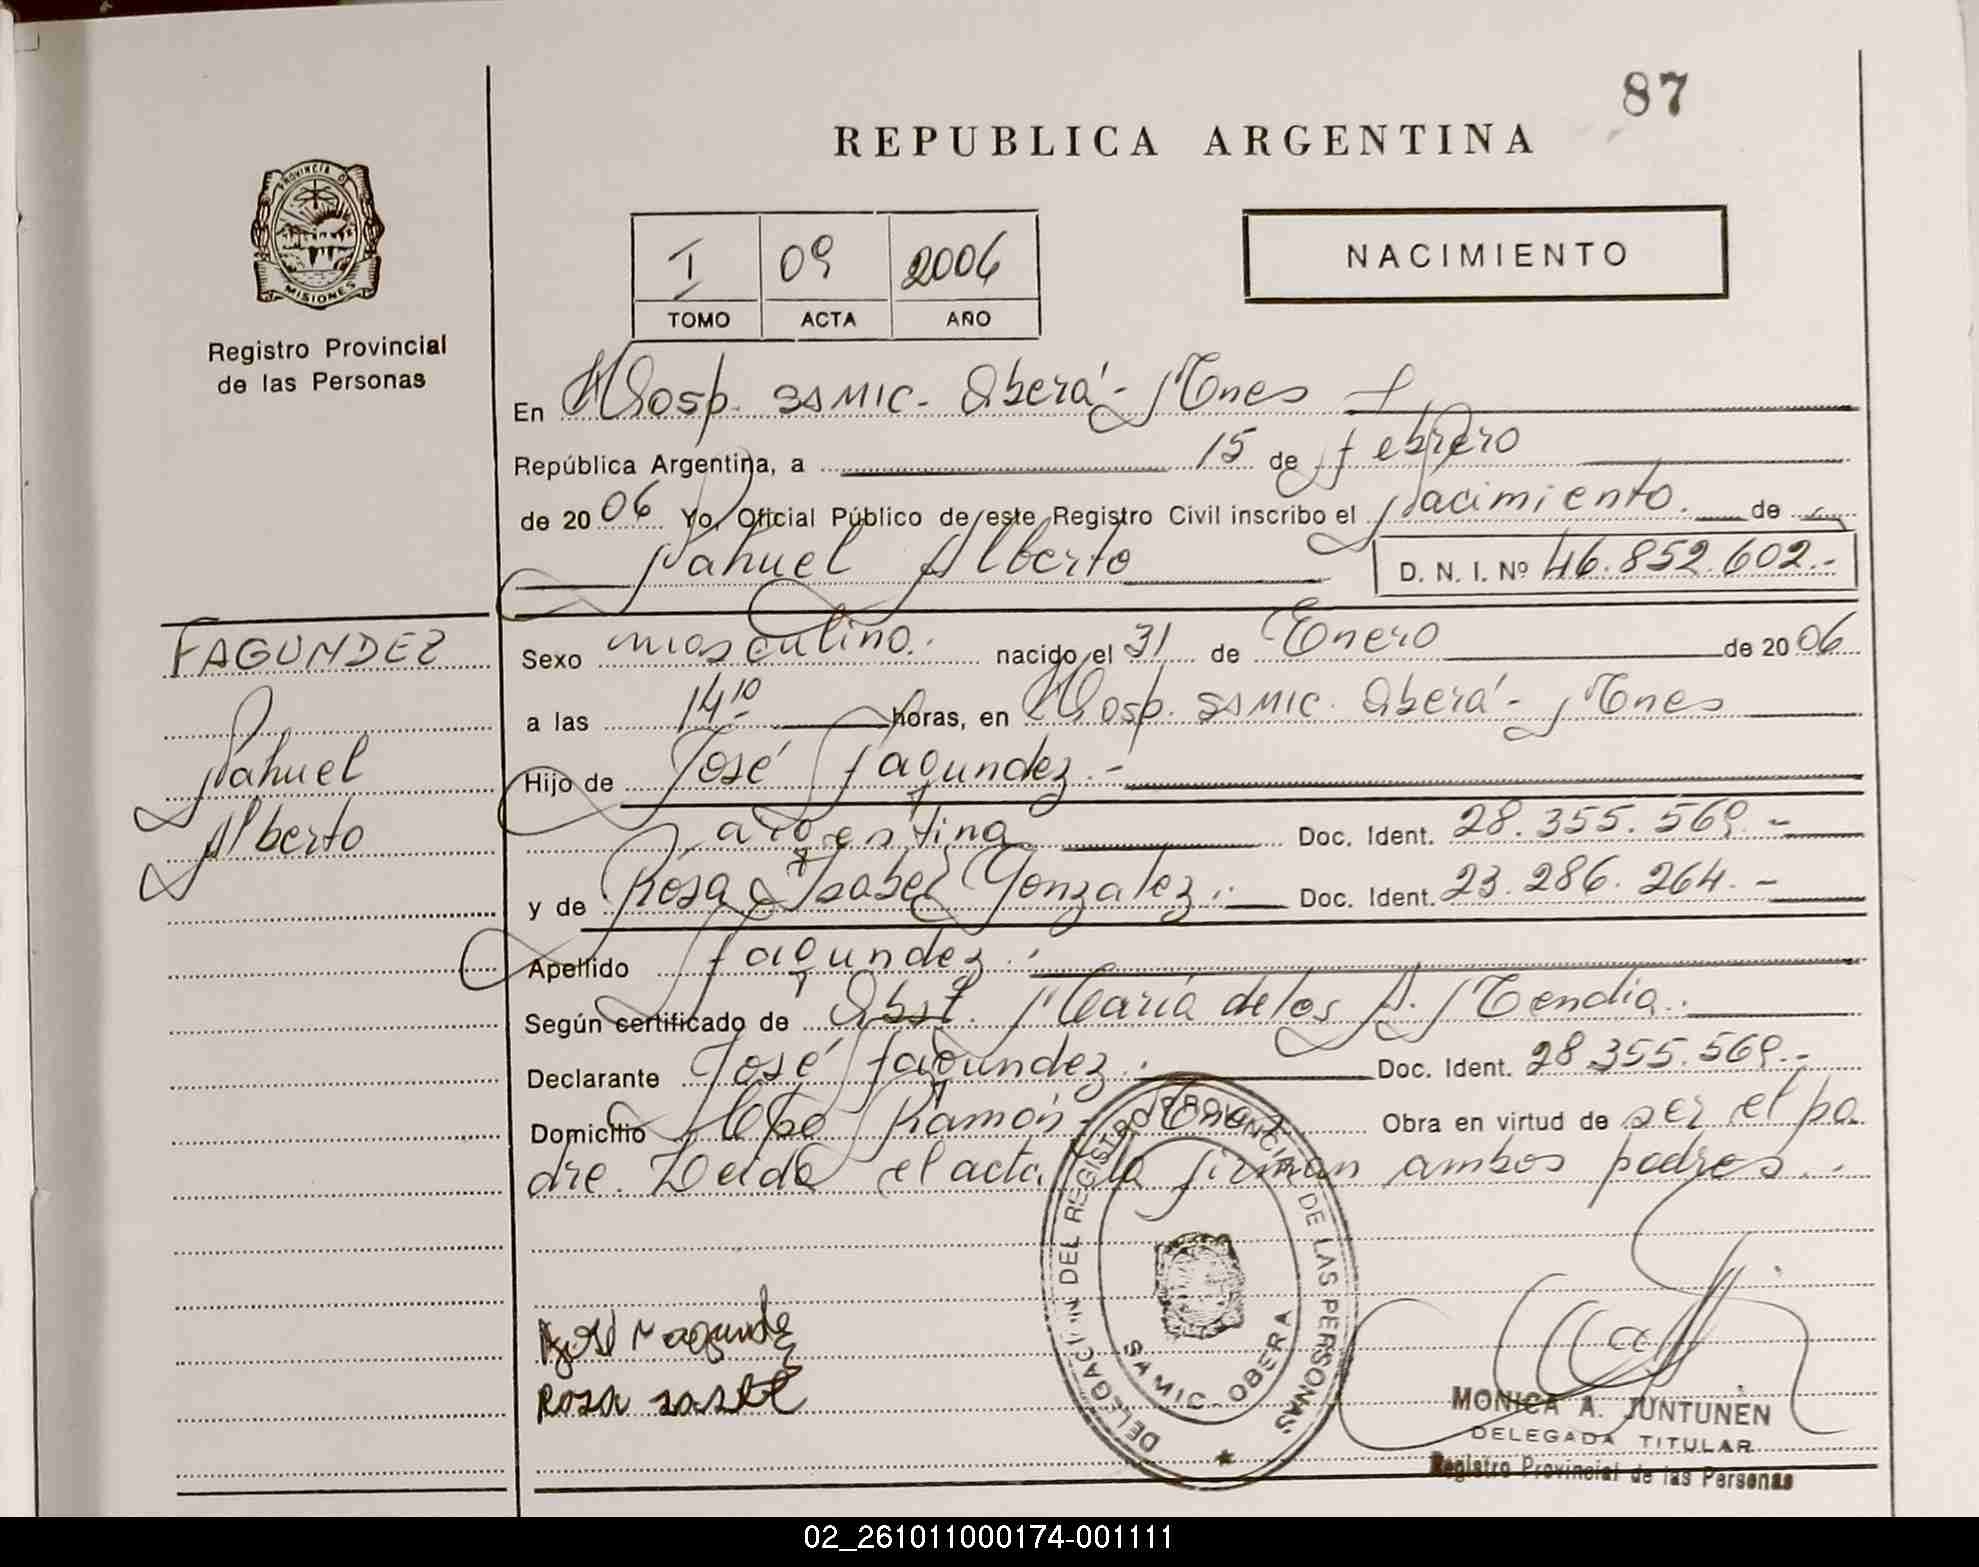 87
REPUBLICA ARGENTINA
PROVINCIA D
MISIONES
Registro Provincial
de las Personas
I 09 2006
TOMO ACTA AÑO
NACIMIENTO
En Hosp. SAMIC. Oberá - Mnes
República Argentina, a 15 de febrero
de 2006 Yo, Oficial Público de este Registro Civil inscribo el Nacimiento. de
Nahuel Alberto D. N. I. Nº 46.852.602.-
FAGUNDEZ
Nahuel
Alberto
Sexo masculino. nacido el 31 de Enero de 2006
a las 14 10 horas, en Hosp. SAMIC. Oberá - Mnes
Hijo de José Fagundez.-
argentina Doc. Ident. 28.355.569.-
y de Rosa Isabel Gonzalez.- Doc. Ident. 23.286.264.-
Apellido Fagundez.-
Según certificado de Obst. María de los A. Mendia.
Declarante José Fagundez. Doc. Ident. 28.355.569.-
Domicilio Ramón Obra en virtud de ser el pa
dre. Leida el acta, la firman ambos padres.-
DELEGACION DEL REGISTRO PROVINCIAL DE LAS PERSONAS
SAMIC - OBERA
Rosa
MONICA A. JUNTUNEN
DELEGADA TITULAR
Registro Provincial de las Personas
02_261011000174-001111